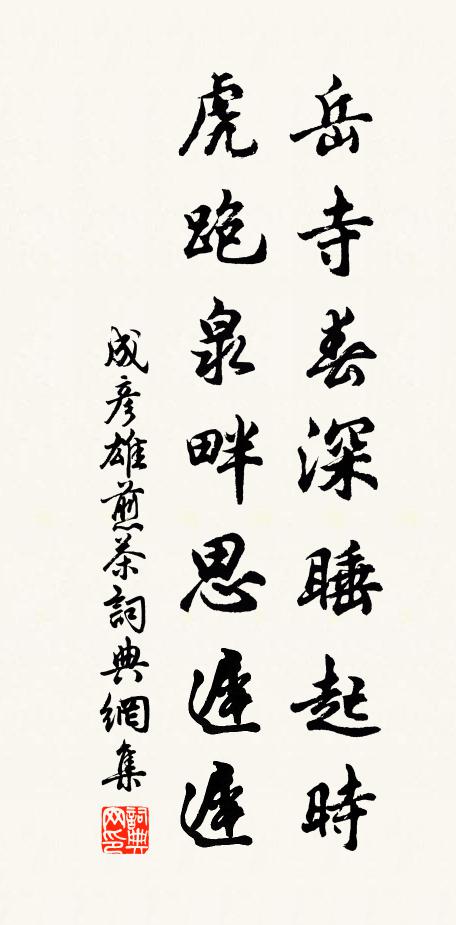 岳寺春深睡起時
虎跑泉畔思遲遲
成彥雄煎茶詞典網集
詞典網印